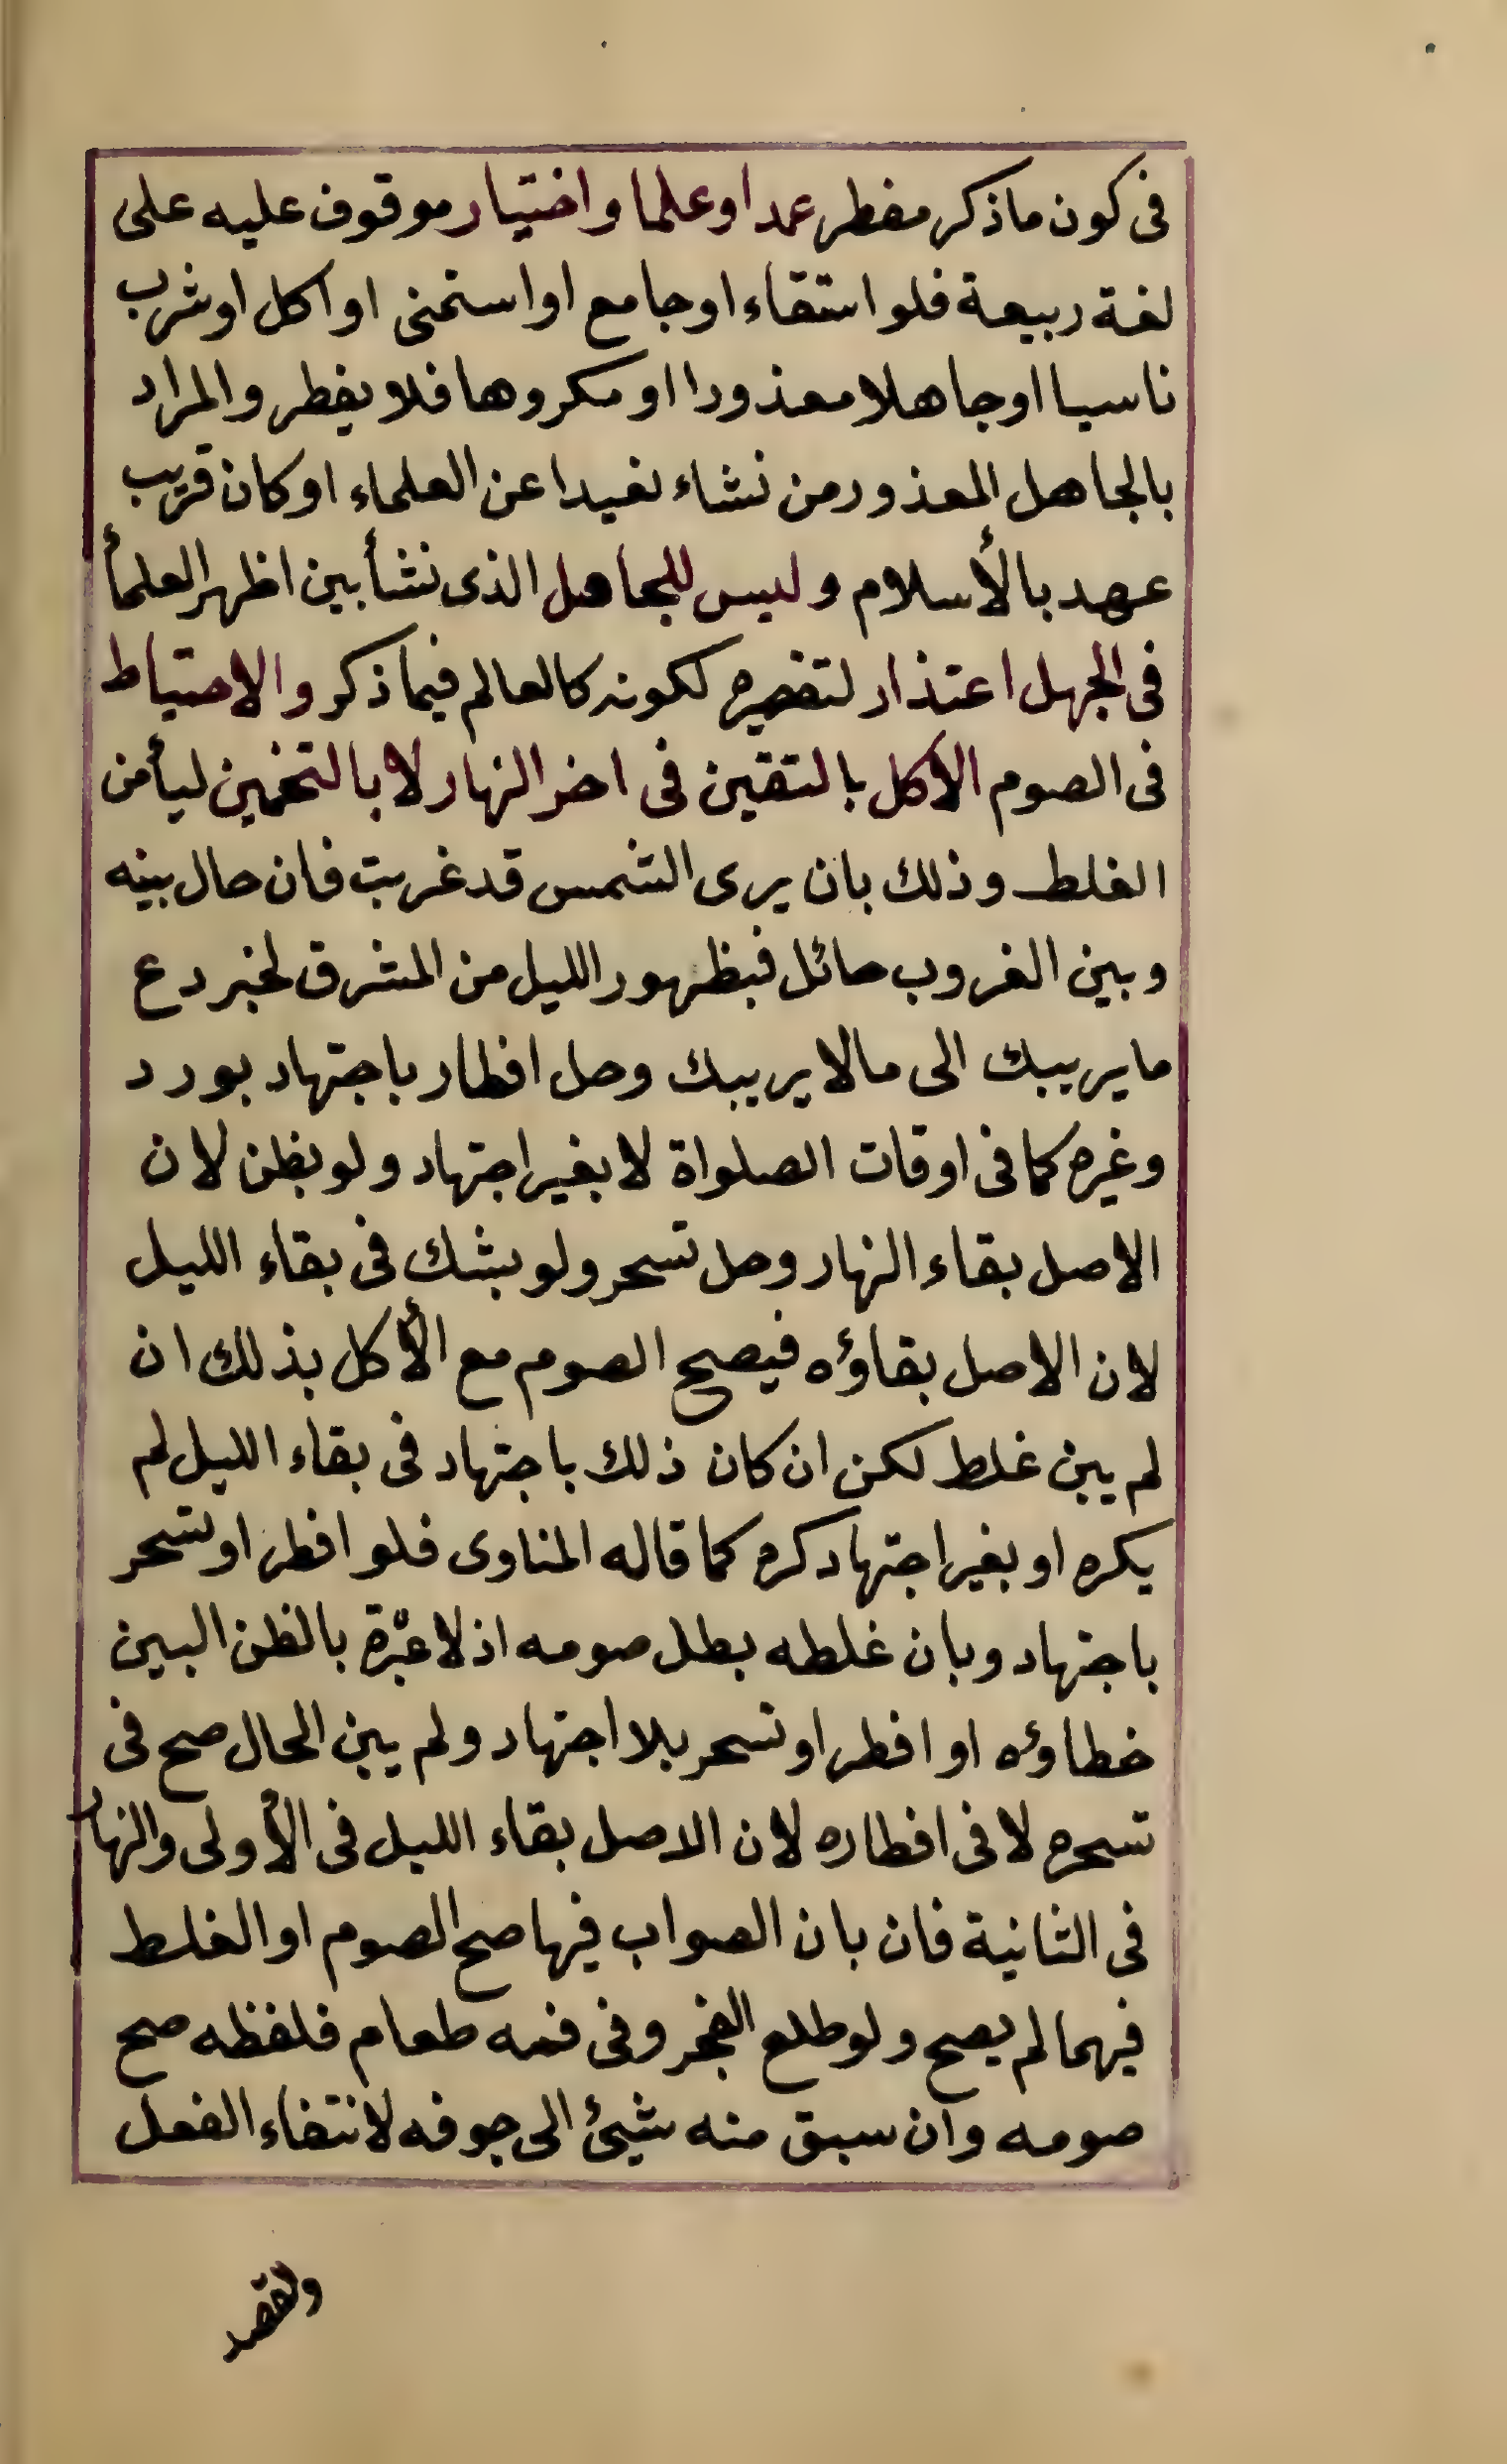 فى كون ماذكر مفطر عمدا وعلما واختيار موقوف عليه على
لغة ربيعة فلو استقاء او جامع او استمنى او اكل او شرب
ناسيا او جاهلا معذورا او مكروها فلا يفطر والمراد
بالجاهل المعذور من نشاء بعيدا عن العلماء او كان قريب
عهد بالأسلام وليس للجاهل الذى نشأ بين اظهر العلمأ
فى الجهل اعتذار لتقصيره لكونه كالعالم فيما ذكر والاحتياط
فى الصوم الاكل بالتقين فى اخر النهار لا بالتخمين ليأمن
الغلط وذلك بان يرى الشمس قد غربت فان حال بينه
وبين الغروب حائل فبظهور الليل من المشرق لخبر دع
ما يريبك الى مالا يريبك وحل افطار باجتهاد بورد
وغيره كما فى اوقات الصلواة لا بغير اجتهاد ولو بظن لان
الاصل بقاء النهار وحل تسحر ولو بشك فى بقاء الليل
لان الاصل بقاؤه فيصح الصوم مع الأكل بذلك ان
لم يبن غلط لكن ان كان ذلك باجتهاد فى بقاء الليل لم
يكره او بغير اجتهاد كره كما قاله المناوى فلو افطر او تسحر
باجتهاد وبان غلطه بطل صومه اذ لا عبرة بالظن البين
خطاؤه او افطر او تسحر بلا اجتهاد ولم يبن الحال صح فى
تسحره لا فى افطاره لان الاصل بقاء الليل فى الأولى والنهار
فى الثانية فان بان الصواب فيها صح الصوم او الغلط
فيهما لم يصح ولو طلع الفجر وفى فمه طعام فلفظه صح
صومه وان سبق منه شيئ الى جوفه لانتفاء الفعل
ولقصد